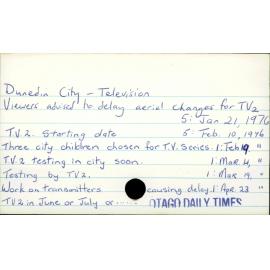 Dunedin City - Television
Viewers advised to delay aerial changes for TV2
5: Jan 21, 1976
T.V. 2. Starting date 5: Feb. 10, 1976
Three city children chosen for T.V. Series. 1: Feb 19, "
T.V. 2 testing in city soon. 1: Mar. 4, "
Testing by T.V. 2. 1: Mar. 19, "
Work on transmitters causing delay. 1: Apr. 23 "
TV 2 in June or July or ...... OTAGO DAILY TIMES